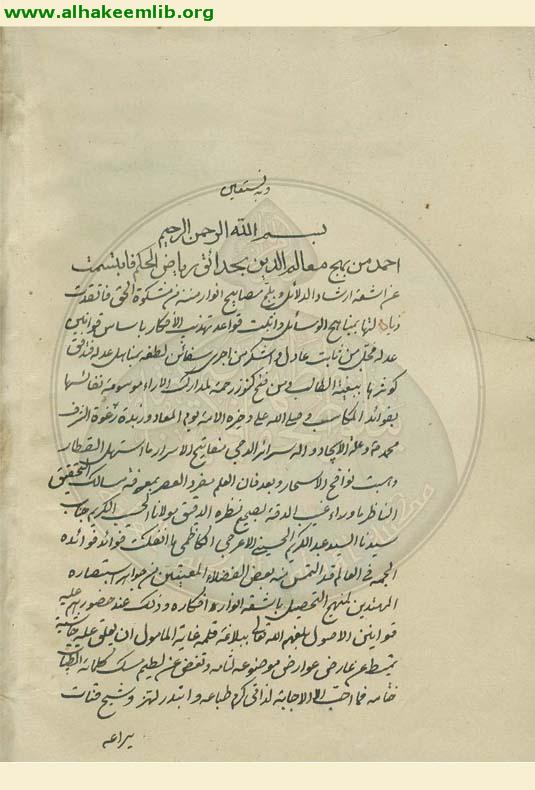 www.alhakeemlib.org
وبه نستعين
بسم الله الرحمن الرحيم
احمد من نهج معالم الدين بحدائق رياض الحكم فابتسمت
عن اشعة ارشاد الدلائل وبلج مصابيح انوار من مشكوة الحق فاتقدت
بمناهج الوسائل واثبت قواعد تهذيب الاحكار باساس قوانين
عدله من ثابت عادل واشكر من اجرى سفائن لطفه بمناهل عدله فتدفق
كوثرها ببغية الطالب ومن فتح كنوز رحمته لمدارك الاراء موسوعة نفائسها
بفوائد المكاسب وصلى الله على وخيرة الامة يوم المعاد وزبدة الشرف
محمد وعلة الايجاد واله سرائر الدجى مفاتيح الاسرار ما استهل القطار
وهبت نوافح الاسحار وبعد فان العلم مسالك التحقيق
الناظر ما وراء غيب الدقة بصحيح نظره الدقيق مولانا الحسيب الكريم جناب
سيدنا السيد عبد الكريم الحسيني الاعرجي الكاظمي ما انفكت فوائد فوائده
الجمة في العالم قد التمس منه بعض الفضلاء من استبصاره
المرتدين لمنهج التحصيل باشعة انوار افكاره وذلك عند حضورهم عليه
قوانين الاصول بلغهم الله تعالى ببلاغة قلمه غاية المامول ان يعلق عليه حاشية
تميط عن عارض عوارض موضوعه لثامه وتفض عن لطيم مسك كلماته
ختامه فما احب الا الاجابة لذاتي كرم طباعه وابتدر لهز وشيج قنات
يراعه